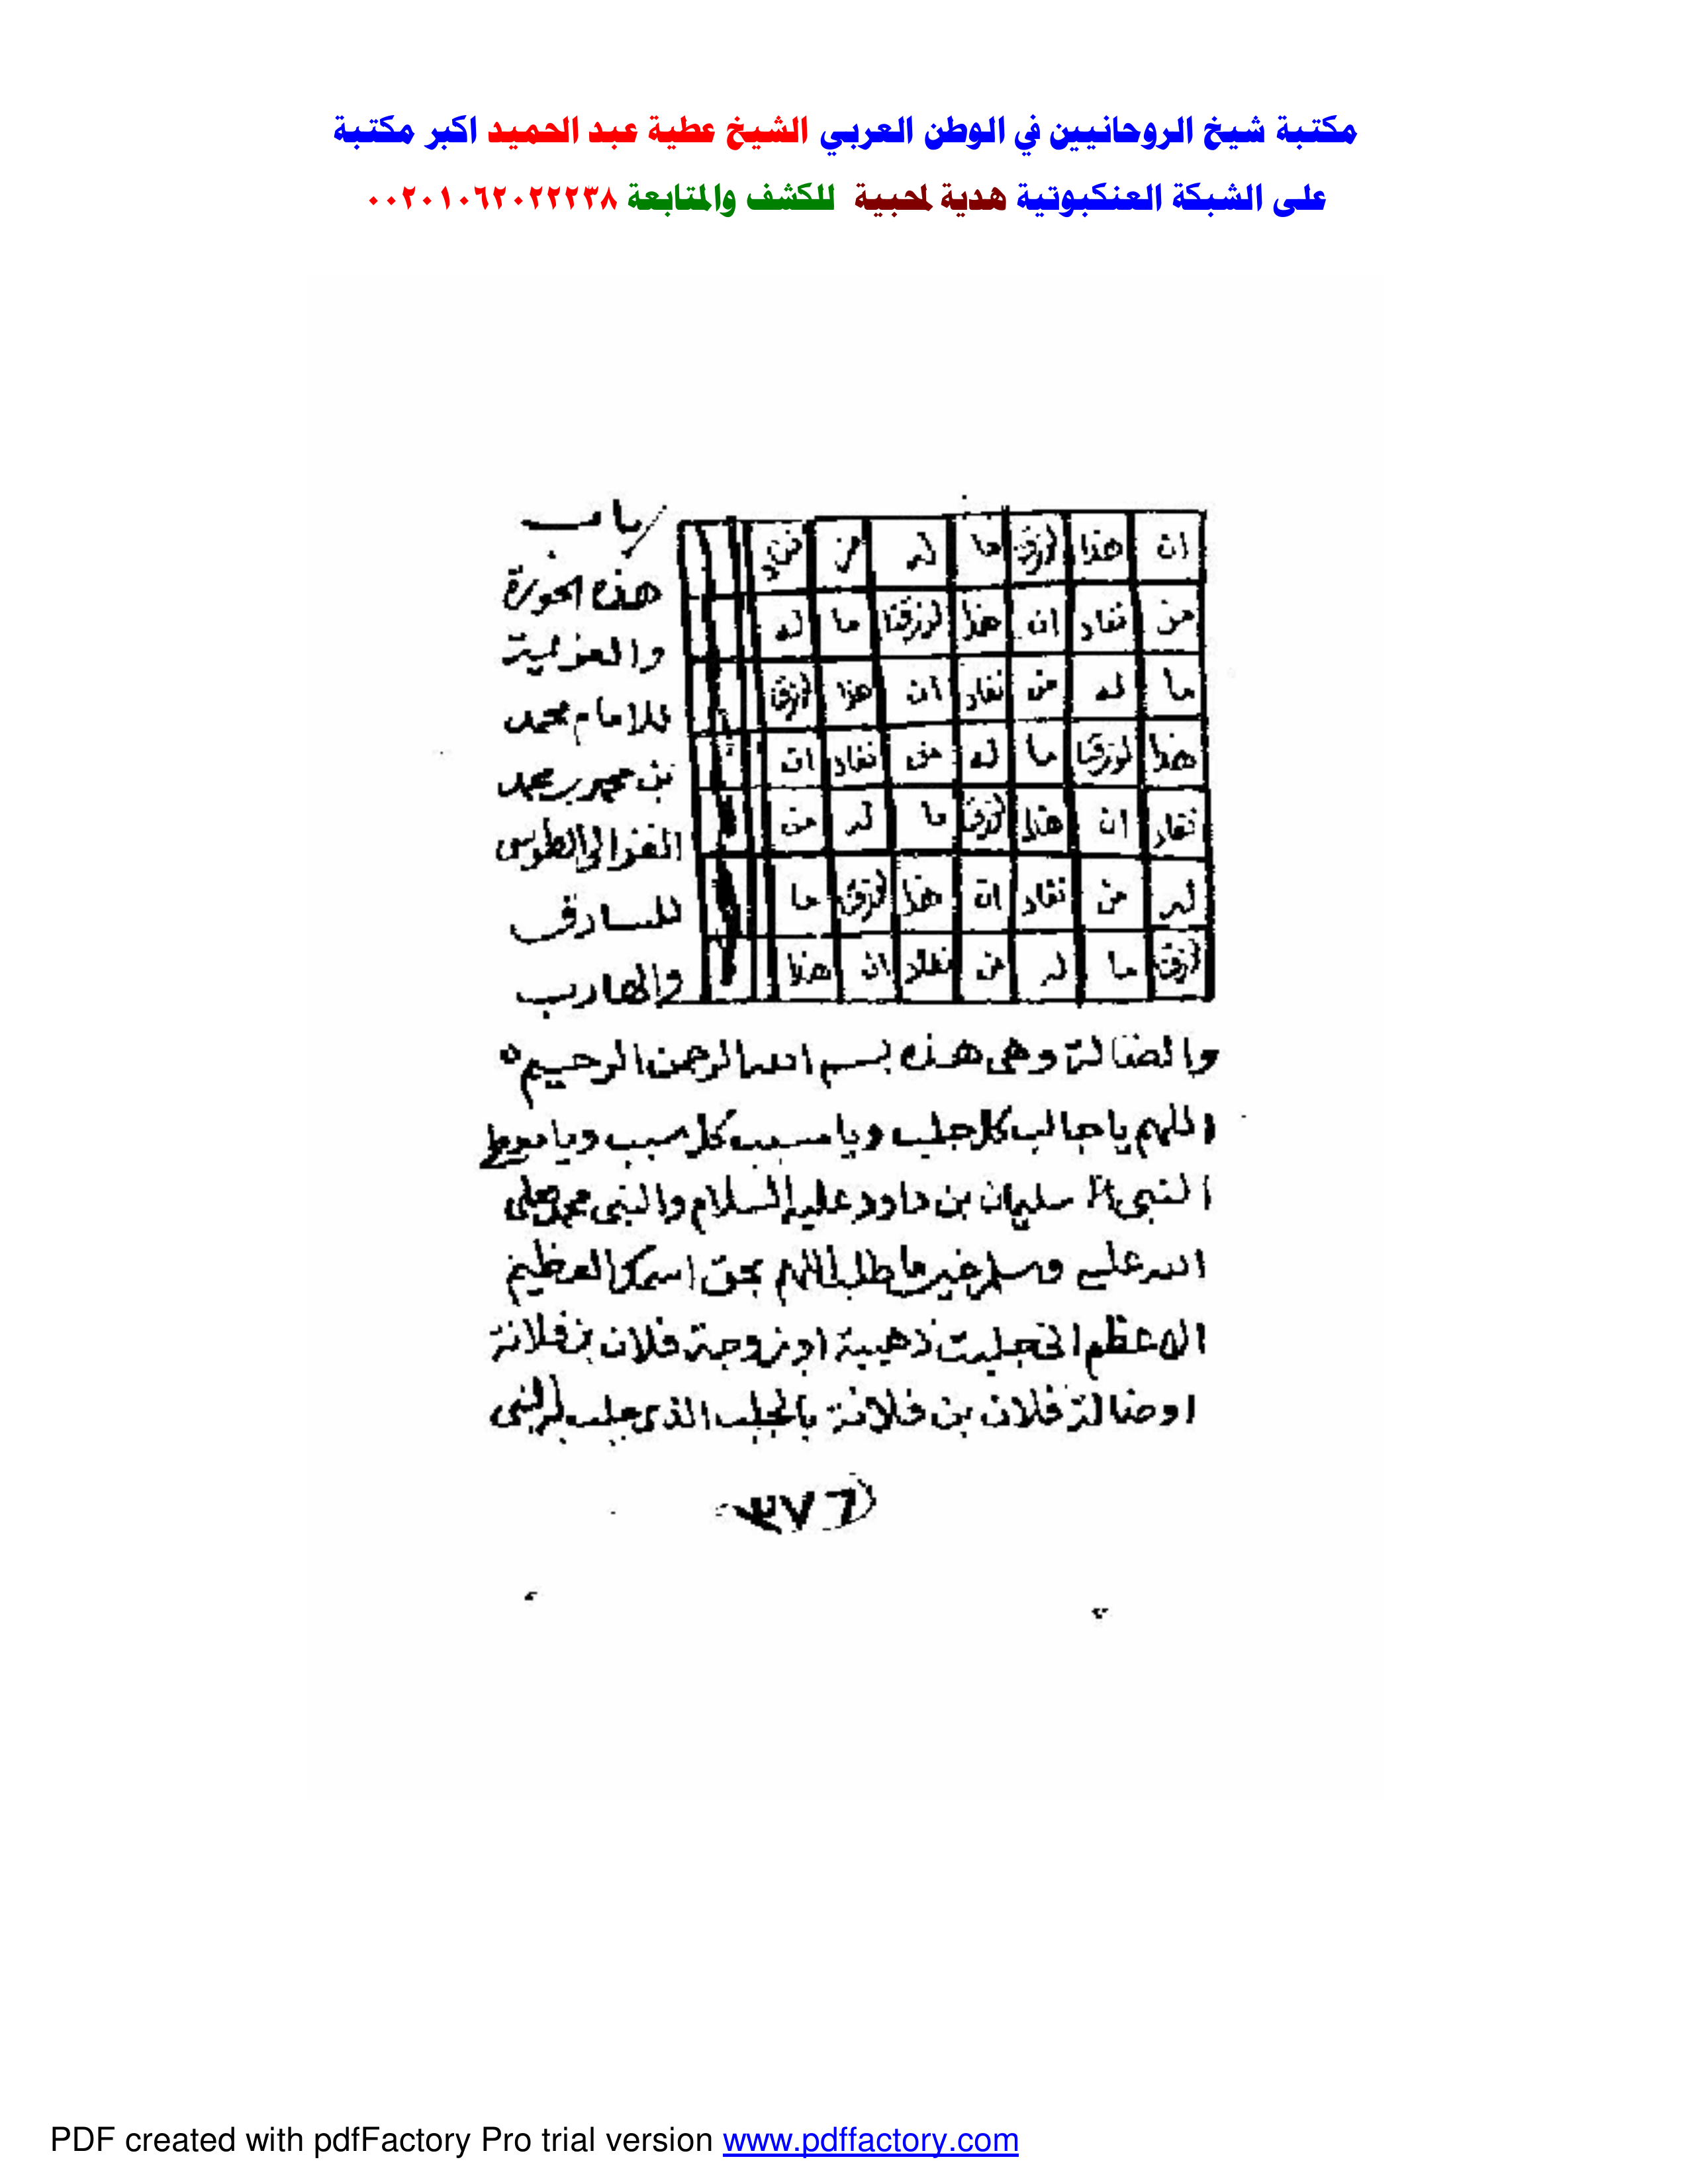 مكتبة شيخ الروحانيين في الوطن العربي الشيخ عطية عبد الحميد اكبر مكتبة
على الشبكة العنكبوتية هدية لمحبية للكشف والمتابعة ٠٠٢٠١٠٦٢٠٢٢٢٣٨
ان هذا لرزقنا ما له من نفاد
من نفاد ان هذا لرزقنا ما له
ما له من نفاد ان هذا لرزقنا
هذا لرزقنا ما له من نفاد ان
نفاد ان هذا لرزقنا ما له من
له من نفاد ان هذا لرزقنا ما
لرزقنا ما له من نفاد ان هذا
باب
هذه
والعزلية
للامام محمد
بن محمد بن محمد
الغزالي الطوسى
للسارق
والهارب
والضالة وهى هذه بسم الله الرحمن الرحيم
اللهم يا جالب كل جلب ويا مسبب كل سبب ويا
النبي سليمان بن داود عليه السلام والنبى محمد صلى
الله عليه وسلم غير ما طلب اللهم بحق اسمك العظيم
الاعظم جلبت ذهيبة او زوجة فلان بن فلانة
او ضالة فلان بن فلانة بالجلب الذى جلب به النبى
٣٧٦
PDF created with pdfFactory Pro trial version www.pdffactory.com